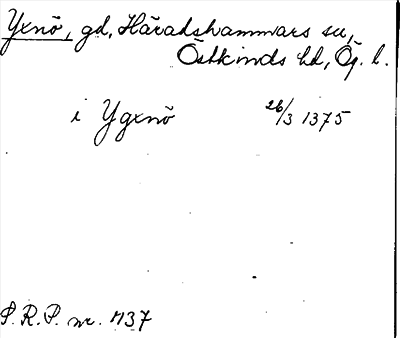 Yxnö, gd, Häradshammars sn,
Östkinds hd, Ög. l.
i Ygxnö 26/3 1375
P.R.P. nr. 1137